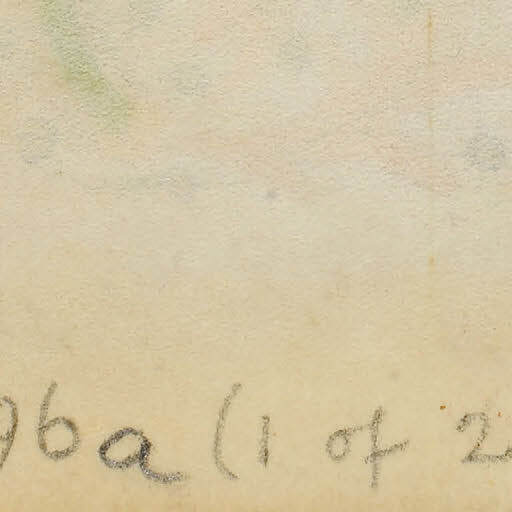 96a (1 of 2